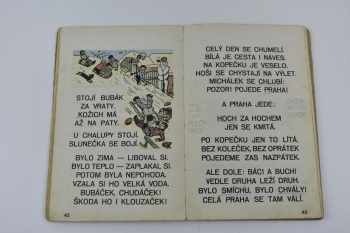 STOJÍ BUBÁK
ZA VRATY.
KOŽICH MÁ
AŽ NA PATY.
U CHALUPY STOJÍ.
SLUNEČKA SE BOJÍ.
BYLO ZIMA — LIBOVAL SI.
BYLO TEPLO — ZAPLAKAL SI.
POTOM BYLA NEPOHODA.
VZALA SI HO VELKÁ VODA.
BUBÁČEK, CHUDÁČEK!
ŠKODA HO I KLOUZAČEK!
42
CELÝ DEN SE CHUMELÍ.
BÍLÁ JE CESTA I NÁVES.
NA KOPEČKU JE VESELO.
HOŠI SE CHYSTAJÍ NA VÝLET.
MICHÁLEK SE CHLUBÍ:
POZOR! POJEDE PRAHA!
A PRAHA JEDE:
HOCH ZA HOCHEM
JEN SE KMITÁ.
PO KOPEČKU JEN TO LÍTÁ.
BEZ KOLEČEK, BEZ OPRÁTEK
POJEDEME ZAS NAZPÁTEK.
ALE DOLE: BÁCI A BUCH!
VEDLE DRUHA LEŽÍ DRUH.
BYLO SMÍCHU, BYLO CHVÁLY!
CELÁ PRAHA SE TAM VÁLÍ.
43